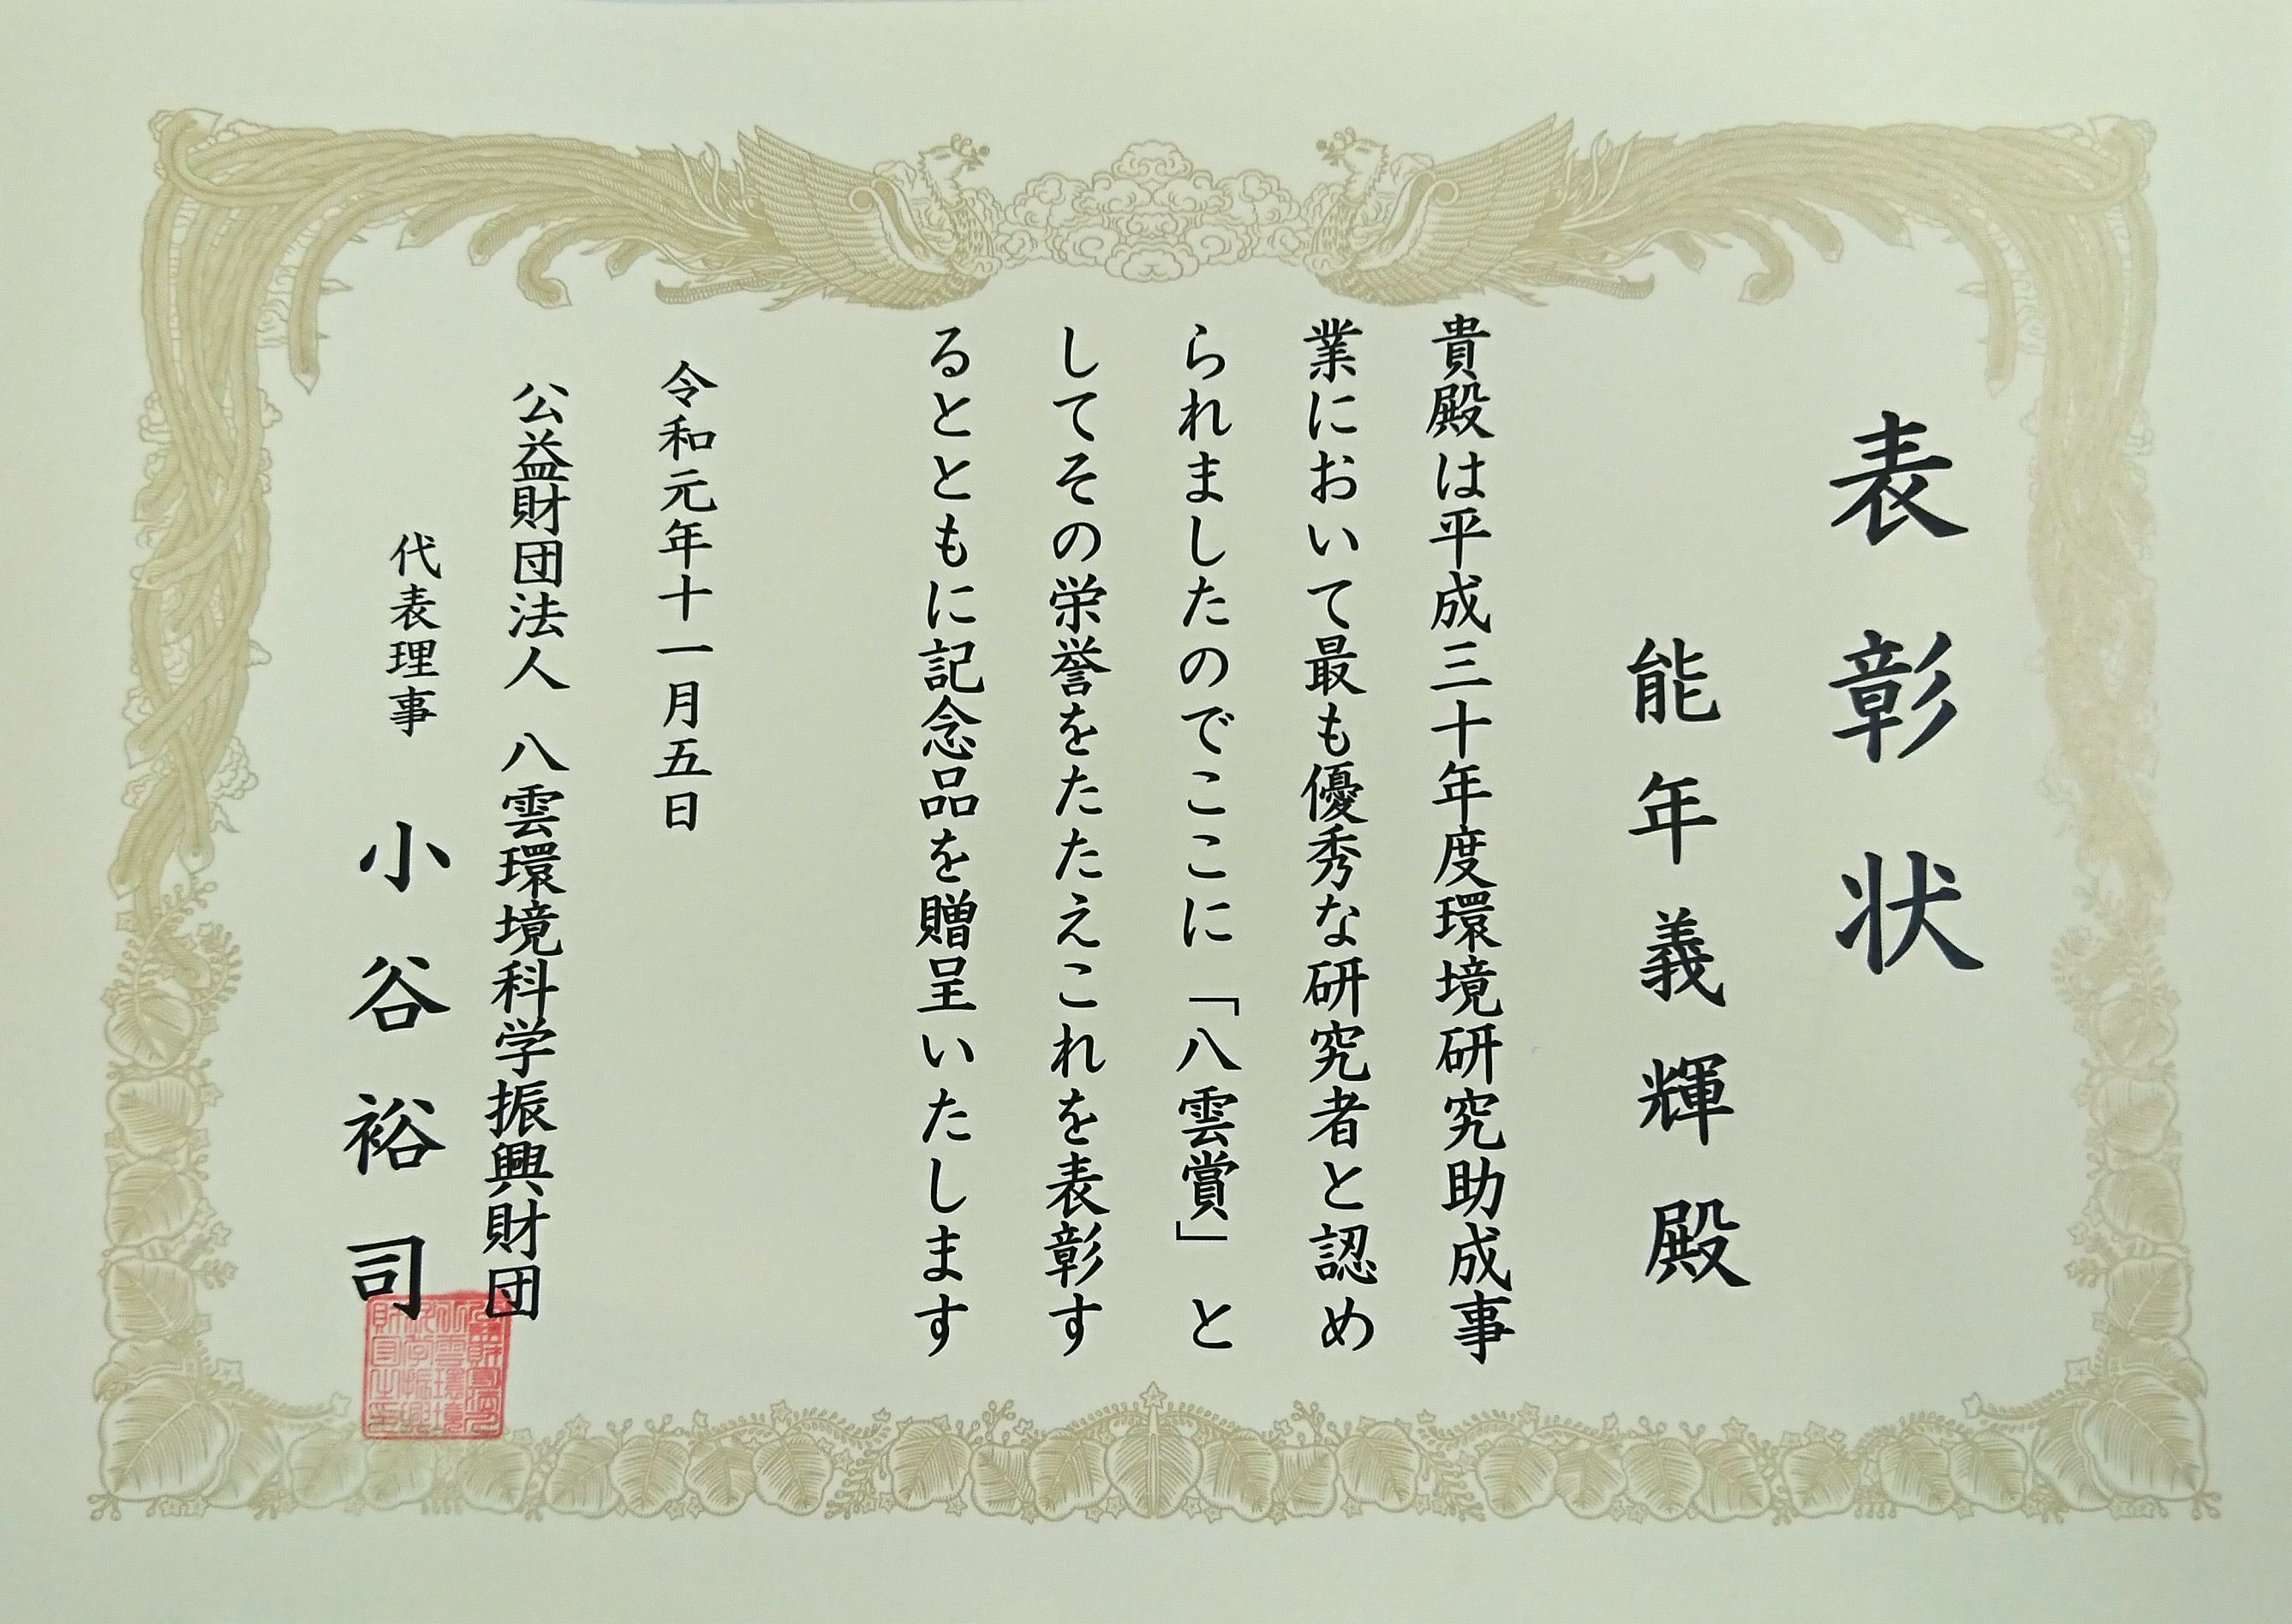 表彰状
能年義輝殿
貴殿は平成三十年度環境研究助成事
業において最も優秀な研究者と認め
られましたのでここに「八雲賞」と
してその栄誉をたたえこれを表彰す
るとともに記念品を贈呈いたします
令和元年十一月五日
公益財団法人 八雲環境科学振興財団
代表理事 小谷裕司